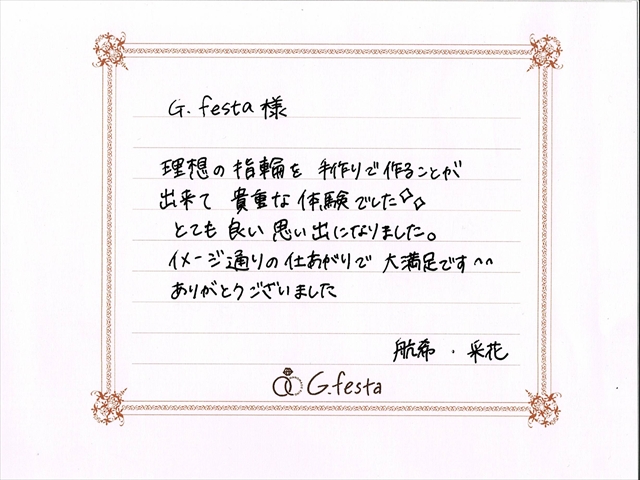 G.festa様
理想の指輪を 手作りで作ることが
出来て 貴重な体験でした✧✧
とても良い思い出になりました。
イメージ通りの仕あがりで 大満足です^^
ありがとうございました
航希・采花
G.festa